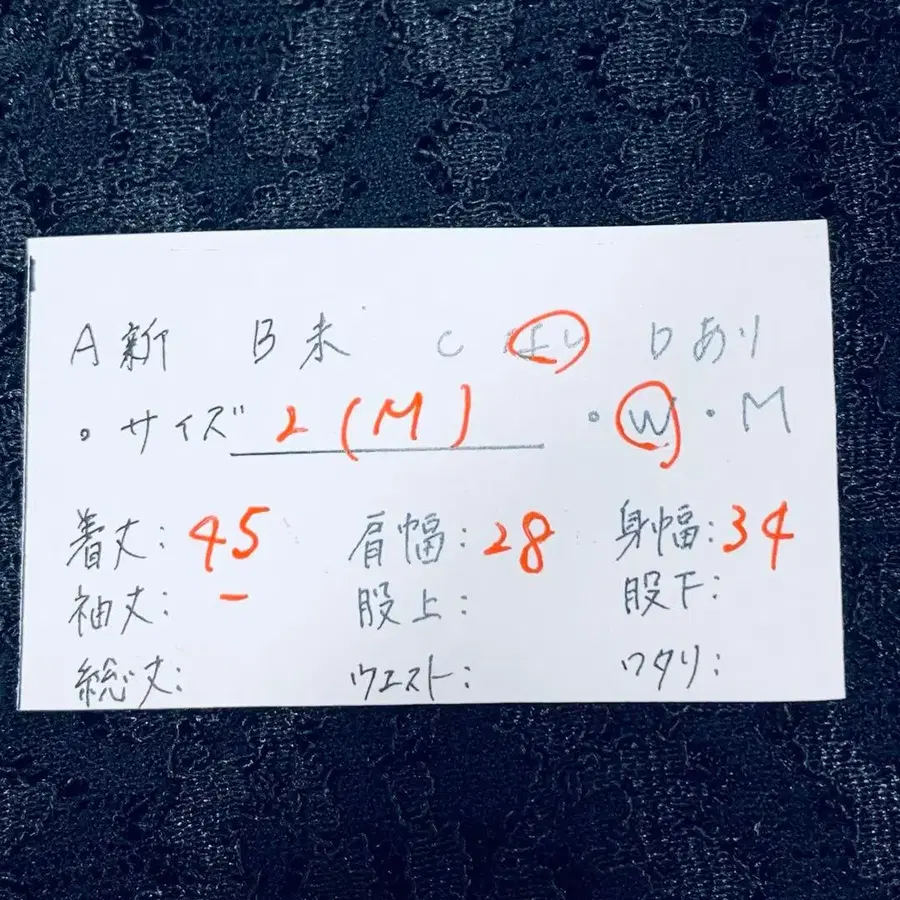 A 新 B 未 C なし D あり
・サイズ 2 (M) ・W・M
着丈: 45 肩幅: 28 身幅: 34
袖丈: - 股上: 股下:
総丈: ウエスト: ワタリ: